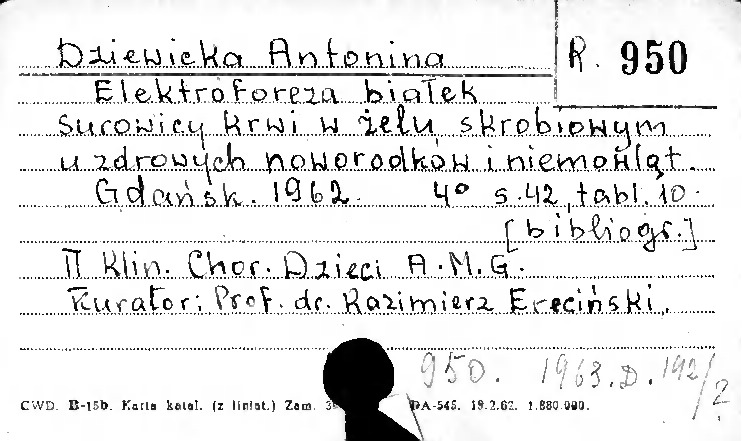 Dziewicka Antonina
R. 950
Elektroforeza białek
surowicy krwi w żelu skrobiowym
u zdrowych noworodków i niemowląt.
Gdańsk. 1962. 4° s. 42, tabl. 10.
[bibliogr.]
II Klin. Chor. Dzieci A.M.G.
Kurator: Prof. dr. Kazimierz Ereciński.
950. 1963.D.192/2
CWD. B-15b. Karta katal. (z liniat.) Zam. DA-545. 19.2.62. 1.880.000.